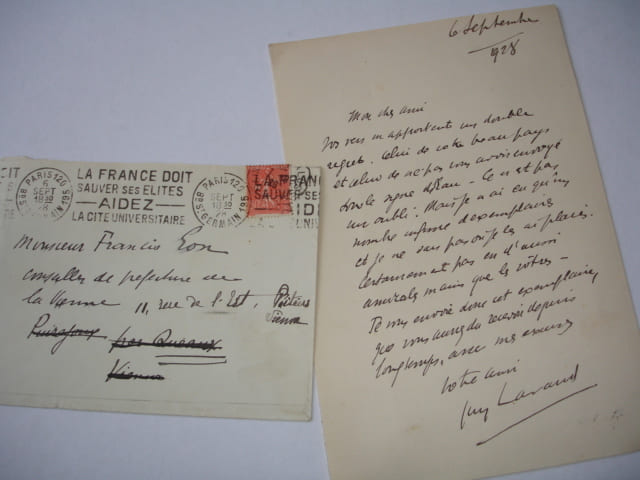 PARIS 120
6
SEPT
1930
Bd ST GERMAIN 195
LA FRANCE DOIT
SAUVER SES ELITES
AIDEZ
LA CITE UNIVERSITAIRE
PARIS 120
SEPT
LA FRAN
SAUVER SES
Monsieur Francis Eon
conseiller de prefecture de
la Vienne 11, rue de l'Est, Poitiers
Vienne
Vienne
6 Septembre
1928
Mon cher ami
Vos vers m'apportent un double
regret. Celui de votre beau pays
et celui de ne pas vous avoir envoyé
sous le signe
un oubli. Mais je n'ai eu qu'un
nombre infime d'exemplaires
et je ne sais pas où je les ai placés.
Certainement pas en d'aussi
amicales mains que les vôtres -
Je vous envoie donc cet exemplaire,
que vous auriez dû recevoir depuis
longtemps, avec mes excuses
Votre ami
Guy Lavaud